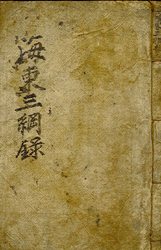 海東三綱録